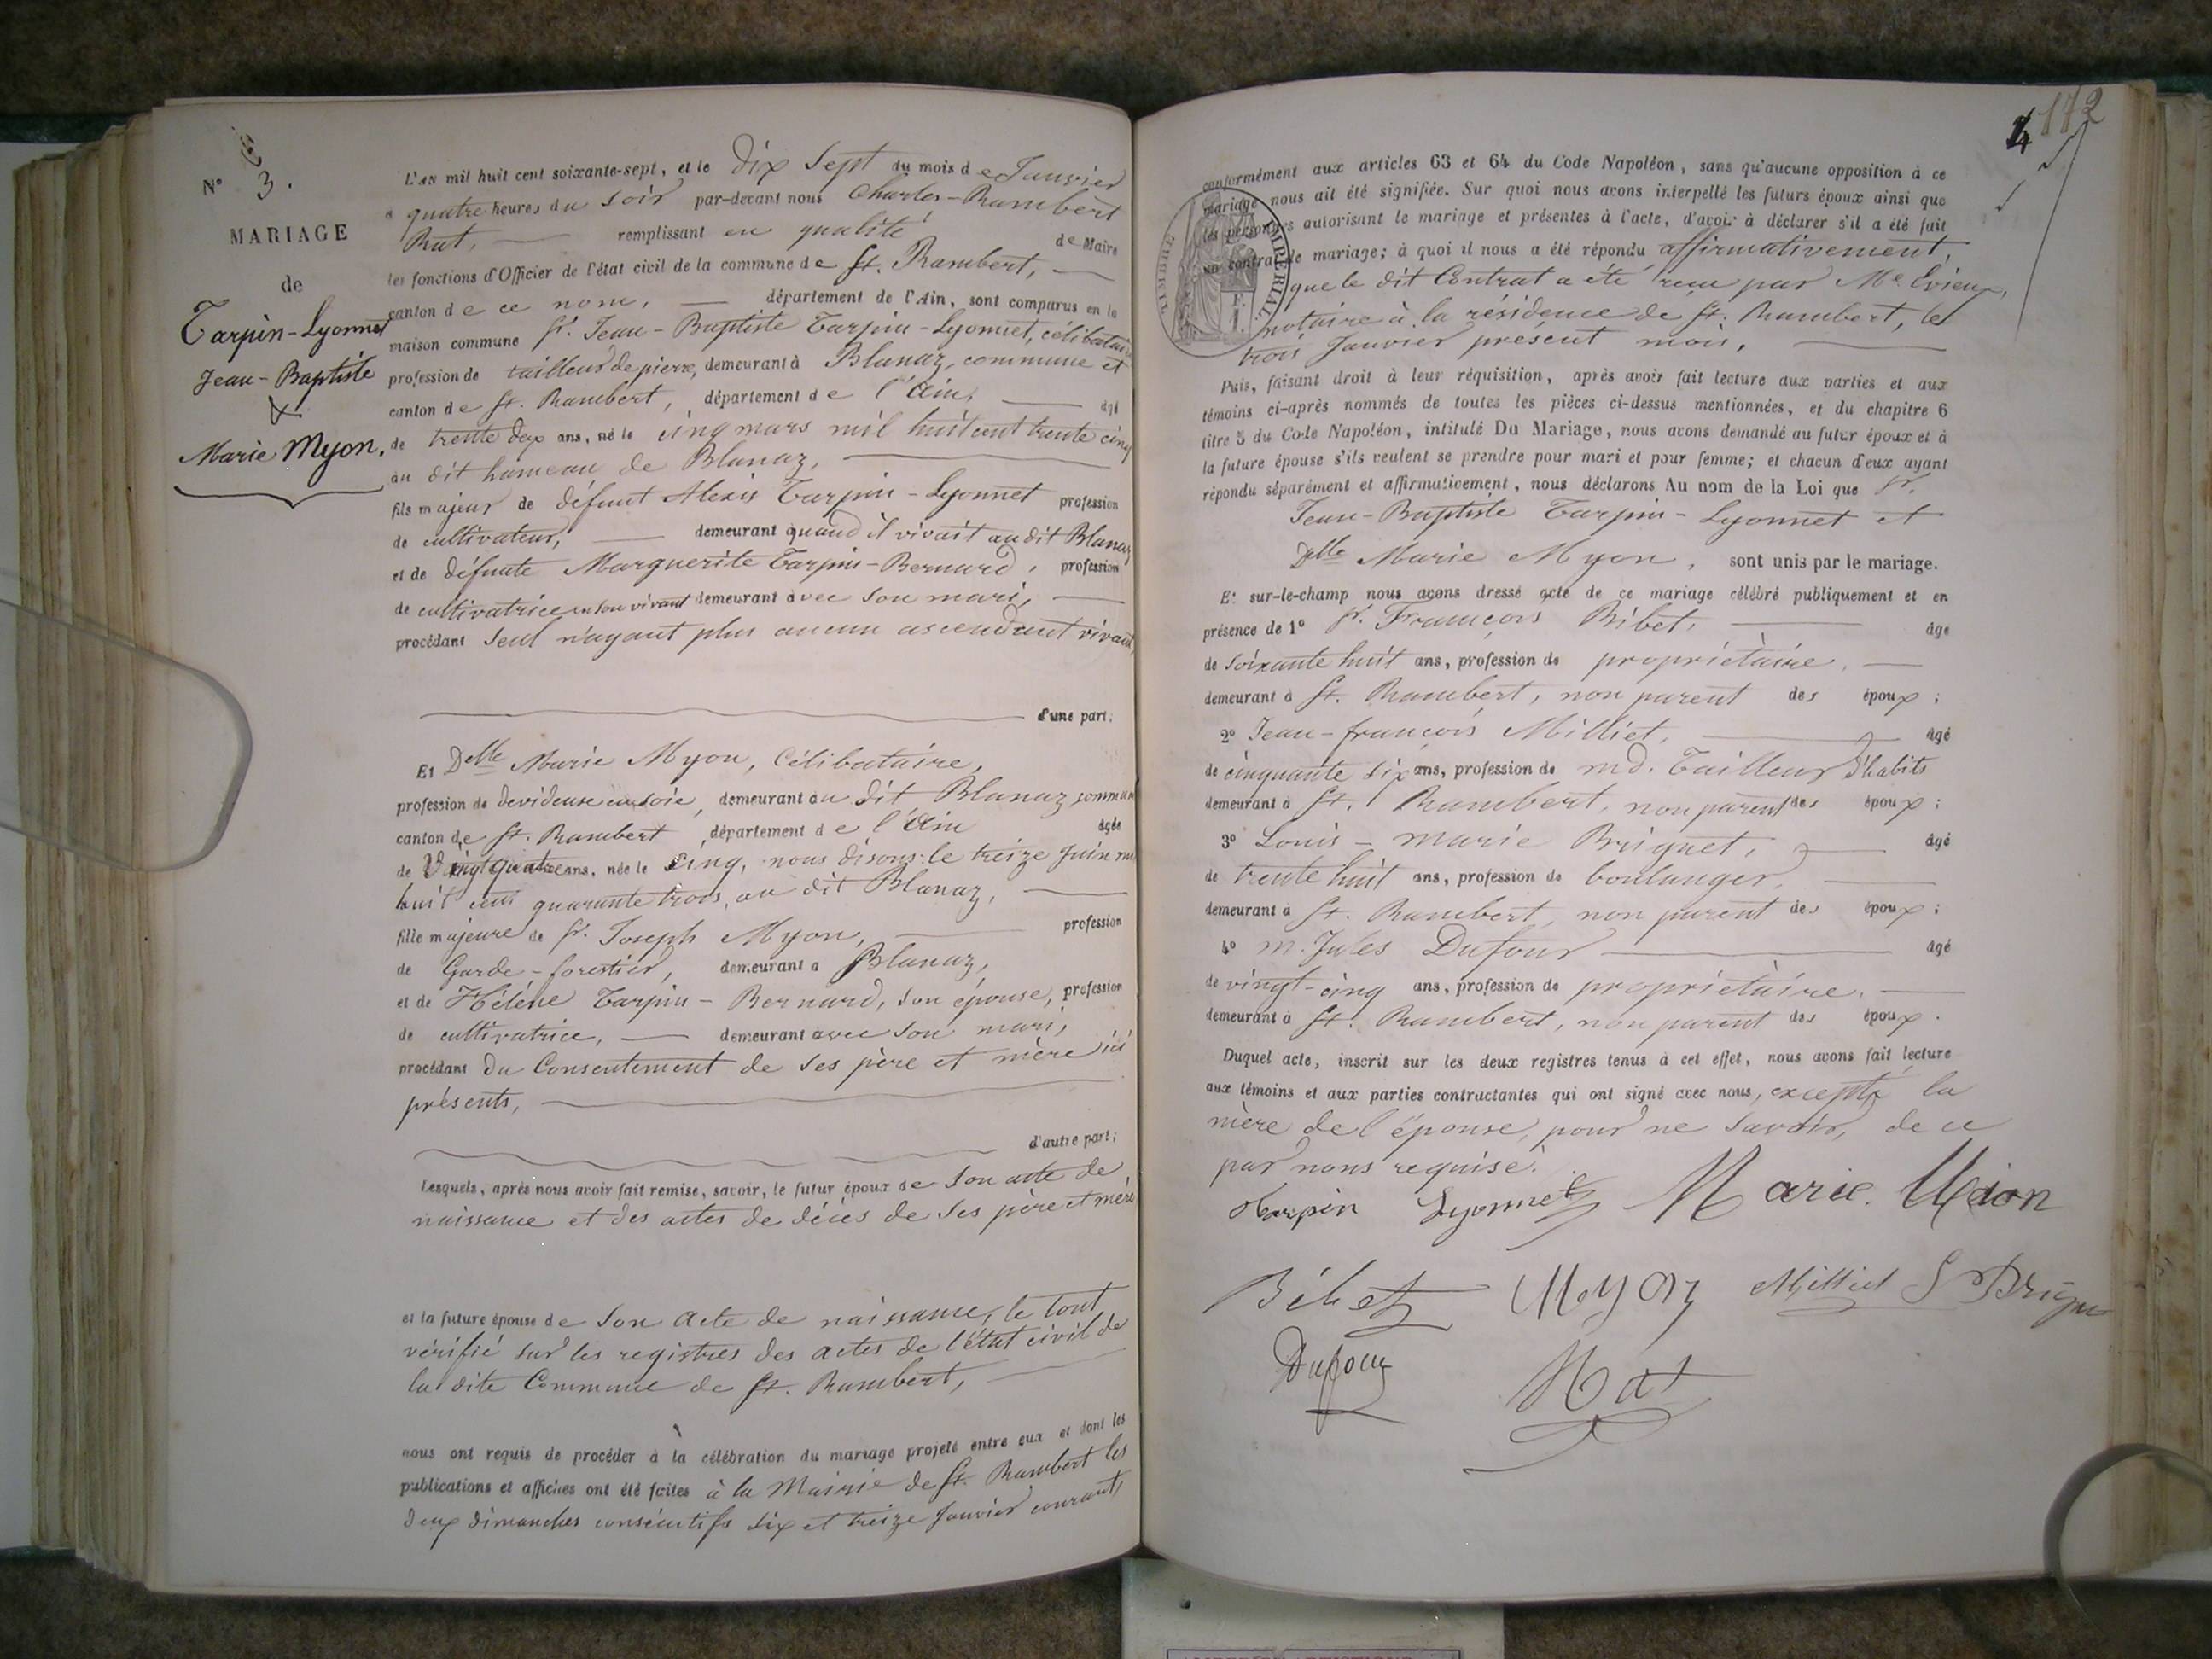 N° 3.
MARIAGE
de
Tarpin-Lyonnet
Jean-Baptiste
&
Marie Myon.
L'AN mil huit cent soixante-sept, et le dix Sept du mois de Janvier
à quatre heures du soir par-devant nous Charles-Rambert
Rat, remplissant en qualité de Maire
les fonctions d'Officier de l'état civil de la commune de St. Rambert,
canton de ce nom, département de l'Ain, sont comparus en la
maison commune Sr. Jean-Baptiste Tarpin-Lyonnet, célibataire
profession de tailleur de pierre, demeurant à Blanaz, commune et
canton de St. Rambert, département de l'Ain, âgé
de trente deux ans, né le cinq mars mil huit cent trente cinq
au dit hameau de Blanaz,
fils majeur de défunt Alexis Tarpin-Lyonnet profession
de cultivateur, demeurant quand il vivait au dit Blanaz
et de défunte Marguerite Tarpin-Bernard, profession
de cultivatrice en son vivant demeurant avec son mari,
procédant seul n'ayant plus aucun ascendant vivant,
d'une part;
Et Delle Marie Myon, Célibataire,
profession de devideuse en soie, demeurant au dit Blanaz commune
canton de St. Rambert, département de l'Ain âgée
de Vingt quatre ans, née le cinq, nous disons le treize Juin mil
huit cent quarante trois, au dit Blanaz,
fille majeure de Sr. Joseph Myon, profession
de Garde-forestier, demeurant à Blanaz,
et de Hélène Tarpin-Bernard, son épouse, profession
de cultivatrice, demeurant avec son mari,
procédant du Consentement de ses père et mère ici
présents,
d'autre part;
Lesquels, après nous avoir fait remise, savoir, le futur époux de son acte de
naissance et des actes de décès de ses père et mère
et la future épouse de son acte de naissance, le tout
vérifié sur les registres des actes de l'état civil de
la dite Commune de St. Rambert,
nous ont requis de procéder à la célébration du mariage projeté entre eux et dont les
publications et affiches ont été faites à la Mairie de St. Rambert les
deux dimanches consécutifs six et treize Janvier courant,
4 172
conformément aux articles 63 et 64 du Code Napoléon, sans qu'aucune opposition à ce
mariage nous ait été signifiée. Sur quoi nous avons interpellé les futurs époux ainsi que
les personnes autorisant le mariage et présentes à l'acte, d'avoir à déclarer s'il a été fait
un contrat de mariage; à quoi il nous a été répondu affirmativement,
que le dit Contrat a été reçu par Me. Evieux,
notaire à la résidence de St. Rambert, le
trois Janvier présent mois,
TIMBRE IMPÉRIAL
Puis, faisant droit à leur réquisition, après avoir fait lecture aux parties et aux
témoins ci-après nommés de toutes les pièces ci-dessus mentionnées, et du chapitre 6
titre 5 du Code Napoléon, intitulé Du Mariage, nous avons demandé au futur époux et à
la future épouse s'ils veulent se prendre pour mari et pour femme; et chacun d'eux ayant
répondu séparément et affirmativement, nous déclarons Au nom de la Loi que Sr.
Jean-Baptiste Tarpin-Lyonnet et
Delle Marie Myon, sont unis par le mariage.
Et sur-le-champ nous avons dressé acte de ce mariage célébré publiquement et en
présence de 1° Sr. François Bibet, âgé
de soixante huit ans, profession de propriétaire,
demeurant à St. Rambert, non parent des époux;
2° Jean-françois Milliet, âgé
de cinquante six ans, profession de md. Tailleur d'habits
demeurant à St. Rambert, non parent des époux;
3° Louis-marie Briguet, âgé
de trente huit ans, profession de boulanger,
demeurant à St. Rambert, non parent des époux;
4° m. Jules Dufour âgé
de vingt-cinq ans, profession de propriétaire,
demeurant à St. Rambert, non parent des époux.
Duquel acte, inscrit sur les deux registres tenus à cet effet, nous avons fait lecture
aux témoins et aux parties contractantes qui ont signé avec nous, excepté la
mère de l'épouse, pour ne savoir, de ce
par nous requise.
Tarpin Lyonnet Marie. Mion
Bibet Myon Milliet L Brigu
Dufour Rat